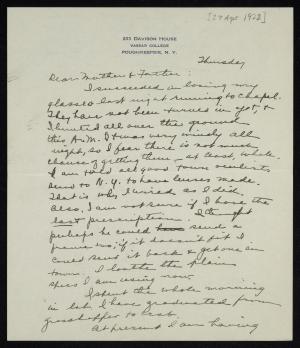 [27 Apr 1922]
233 DAVISON HOUSE
VASSAR COLLEGE
POUGHKEEPSIE, N. Y.
Thursday
Dear Mother & Father:
I succeeded in losing my
glasses last night running to Chapel.
They have not been turned in yet, &
I hunted all over the ground
this A.M. It was very windy all
night, so I fear there is not much
chance of getting them – at least whole.
I am told all good town oculists
send to N.Y. to have lenses made.
That is why I wired as I did.
Also, I am not sure if I have the
last prescription. I thought
perhaps he could send a
frame too; if it doesn't fit I
could send it back & get one in
town. I loathe the plain
specs I am using now.
I spent the whole morning
in lab. I have graduated from
grasshopper to cat.
At present I am having